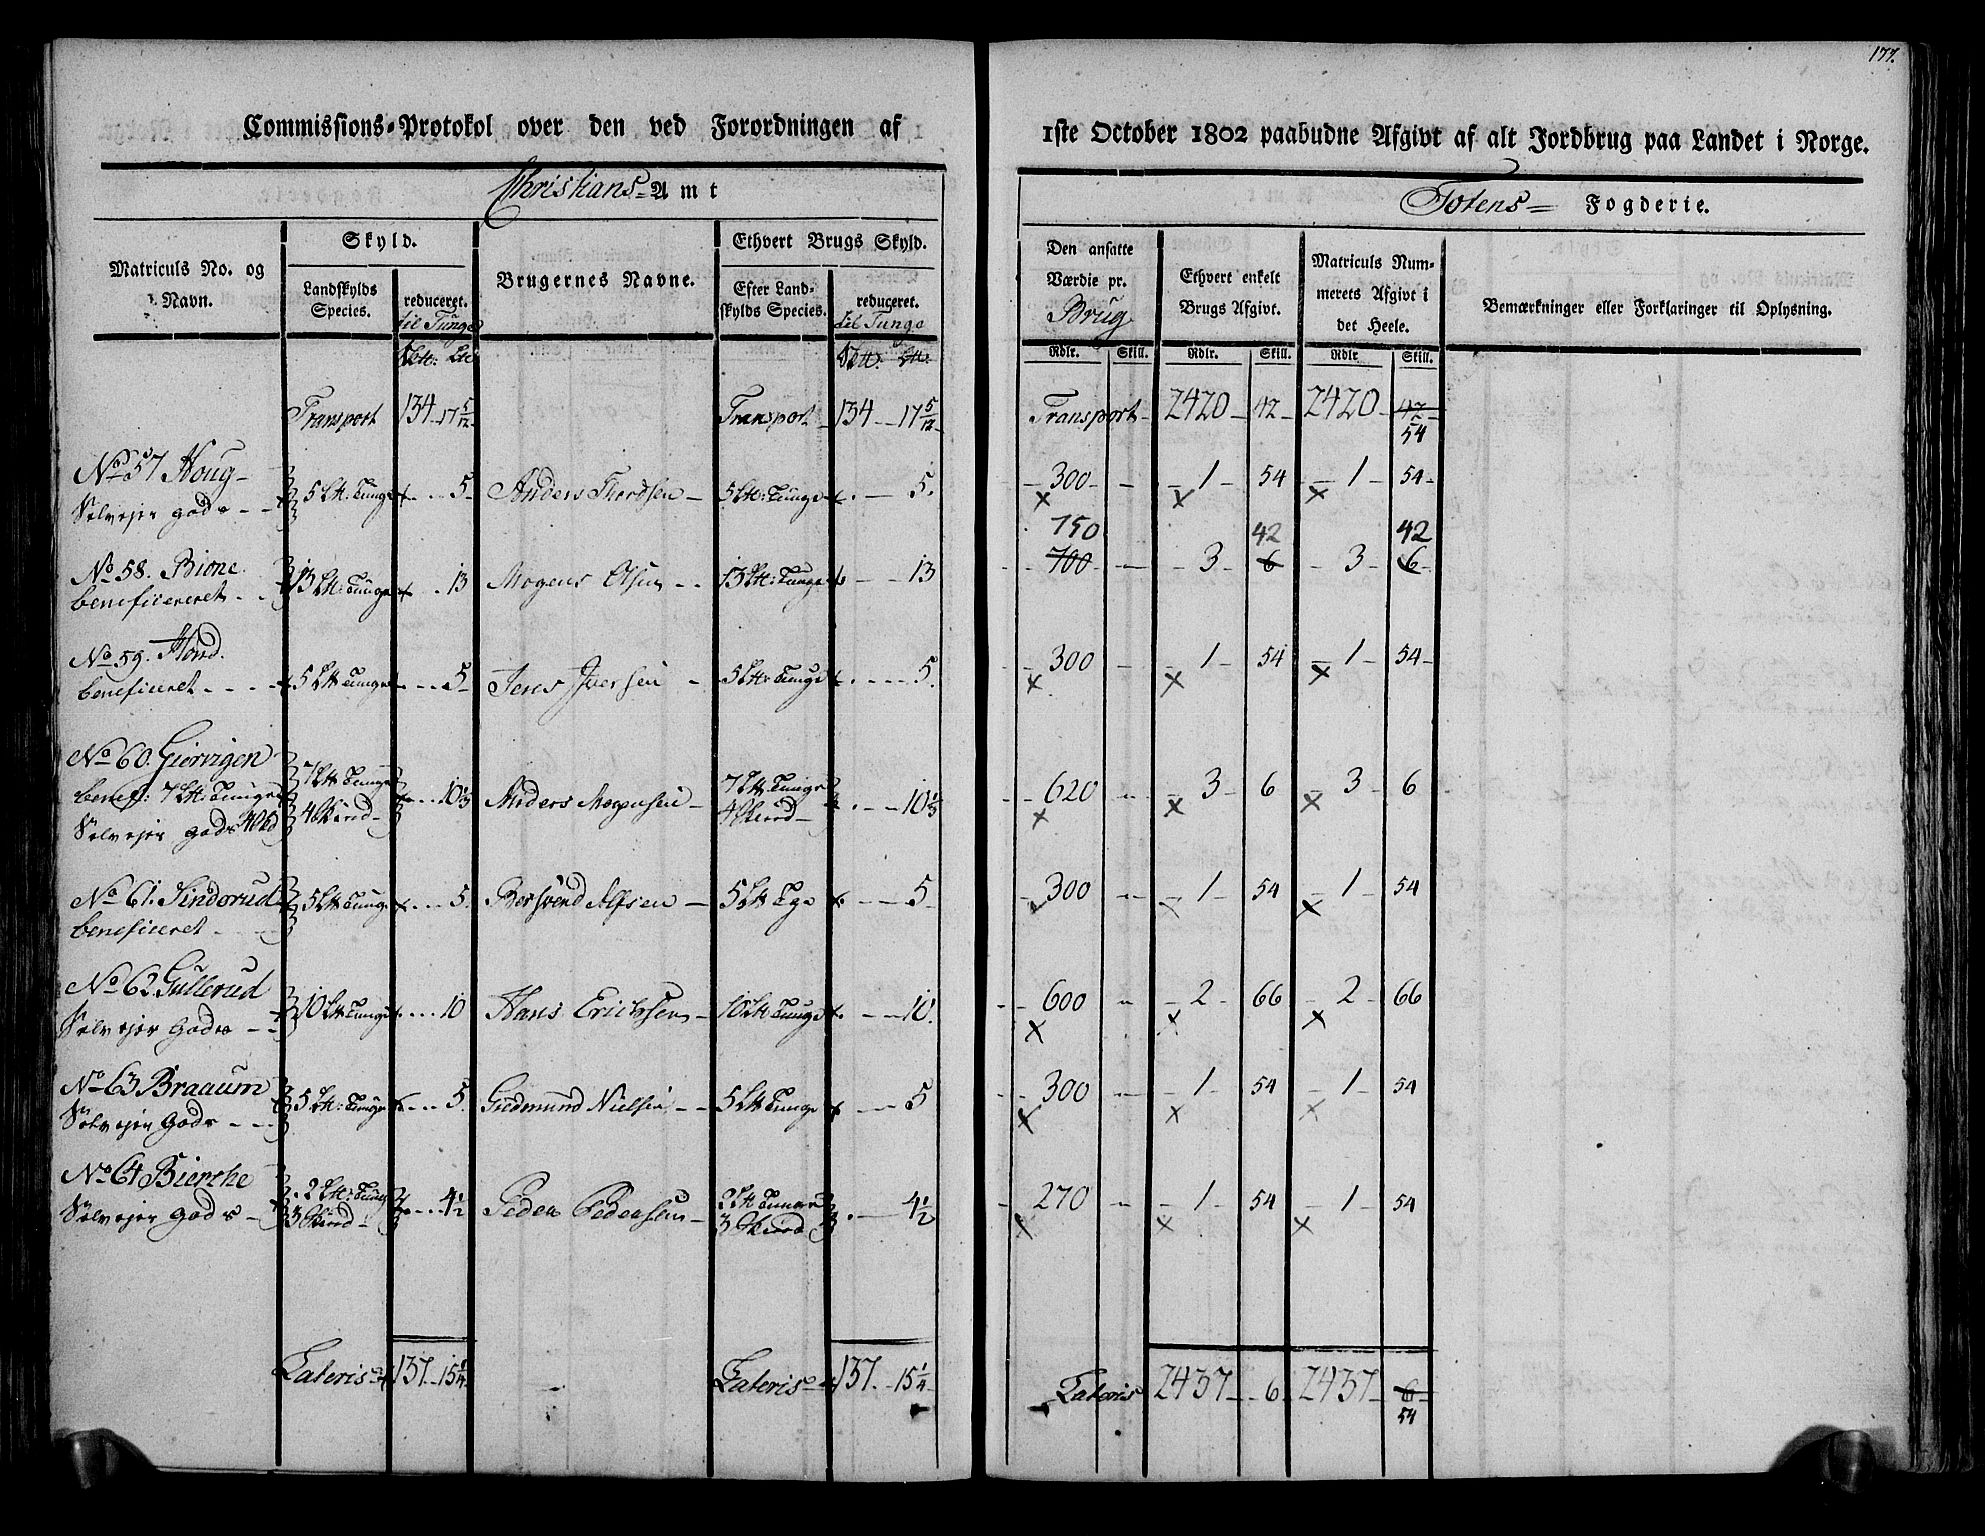 177.
Commissions-Protokol over den ved Forordningen af 1ste October 1802 paabudne Afgivt af alt Jordbrug paa Landet i Norge.
Christians-Amt
Totens- Fogderie.
Matriculs No. og Navn.
Skyld.
Landskylds Species.
reduceret. til Tunge
Brugernes Navne.
Ethvert Brugs Skyld.
Efter Landskylds Species.
reduceret. til Tunge
Den ansatte Værdie pr. Brug
Ethvert enkelt Brugs Afgivt.
Matriculs Nummerets Afgivt i det Heele.
Bemærkninger eller Forklaringer til Oplysning.
Rdlr. Skill. Rdlr. Skill. Rdlr Skill.
Transport 134 17 5/12 Transport 134 17 5/12 Transport 2420 42 2420 42
54
No 57 Houg
Selvejer gods 5 Ltt. Tunge 5 Anders Thordsen 5 Ltt: Tunge 5. 300 1 54 1 54
750 42 42
No 58. Bione. 700 3 6 3 6
beneficereret 13 Ltt: Tunge 13 Mogens Olsen 13 Ltt: Tunge 13
No 59. Hond.
beneficeret 5 Ltt Tunge 5 Jens Iversen 5 Ltt: Tunge 5. 300 1 54 1 54
No 60. Giervigen
benef: 7 Ltt: Tunge 7 Ltt Tunge 10 1/3 Anders Mogensen 7 Ltt Tunge 10 1/3 620 3 6 3 6
Selvejer gods 4 Skind 4 Skind
No 61. Sindsrud 5 Ltt Tunge 5. Bersvend Alfsen 5 Ltt Tge 5 300 1 54 1 54
beneficeret
No 62. Gullerud
Selvejer Gods 10 Ltt Tunge 10 Hans Erichsen 10 Ltt Tunge 10. 600 2 66 2 66
No 63 Braaum
Selvejer Gods 5 Ltt: Tunge 5. Gudmund Nielsen 5 Ltt Tunge 5 300 1 54 1 54
No 64 Bierche
Selvejer Gods 2 Ltt: Tunge 4 1/2 Peder Pedersen 2 Ltt Tunge 4 1/2 270 1 54 1 54
3 Skind 3 Skind
Lateris 137 15 1/4 Lateris 137 15 1/4 Lateris 2437 6 2437 6
54